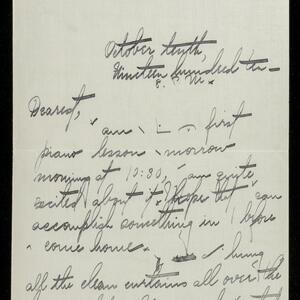 October tenth,
Nineteen hundred ten—
8. P. M.
Dearest,
am first
piano lesson morrow
morning at 10:30, am quite
excited about it. I hope that I can
accomplish something in before
I come home.
hung
all the clean curtains all over the